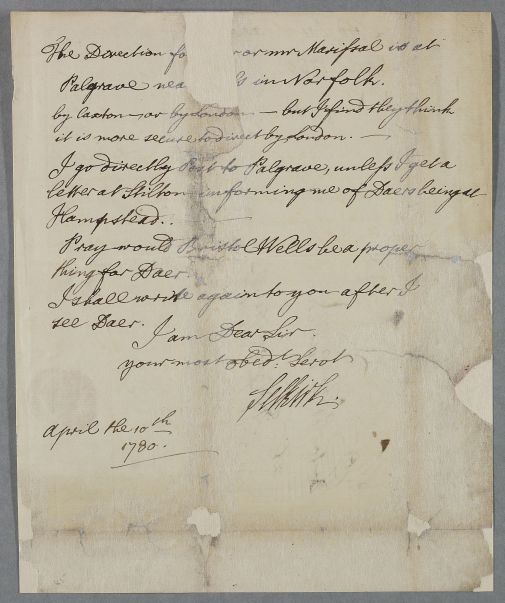 The Direction fo or mr Marissal is at
Palgrave nea s in Norfolk.
by Caxton or by London — but I find they think
it is more secure to direct by London. —
I go directly Post to Palgrave, unless I get a
letter at Stilton informing me of Daers being at
Hampstead. —
Pray would Bristol Wells be a proper
thing for Daer.
I shall write again to you after I
see Daer.
I am Dear Sir
your most obedt. Servt
Selkirk.
April the 10th
1780.